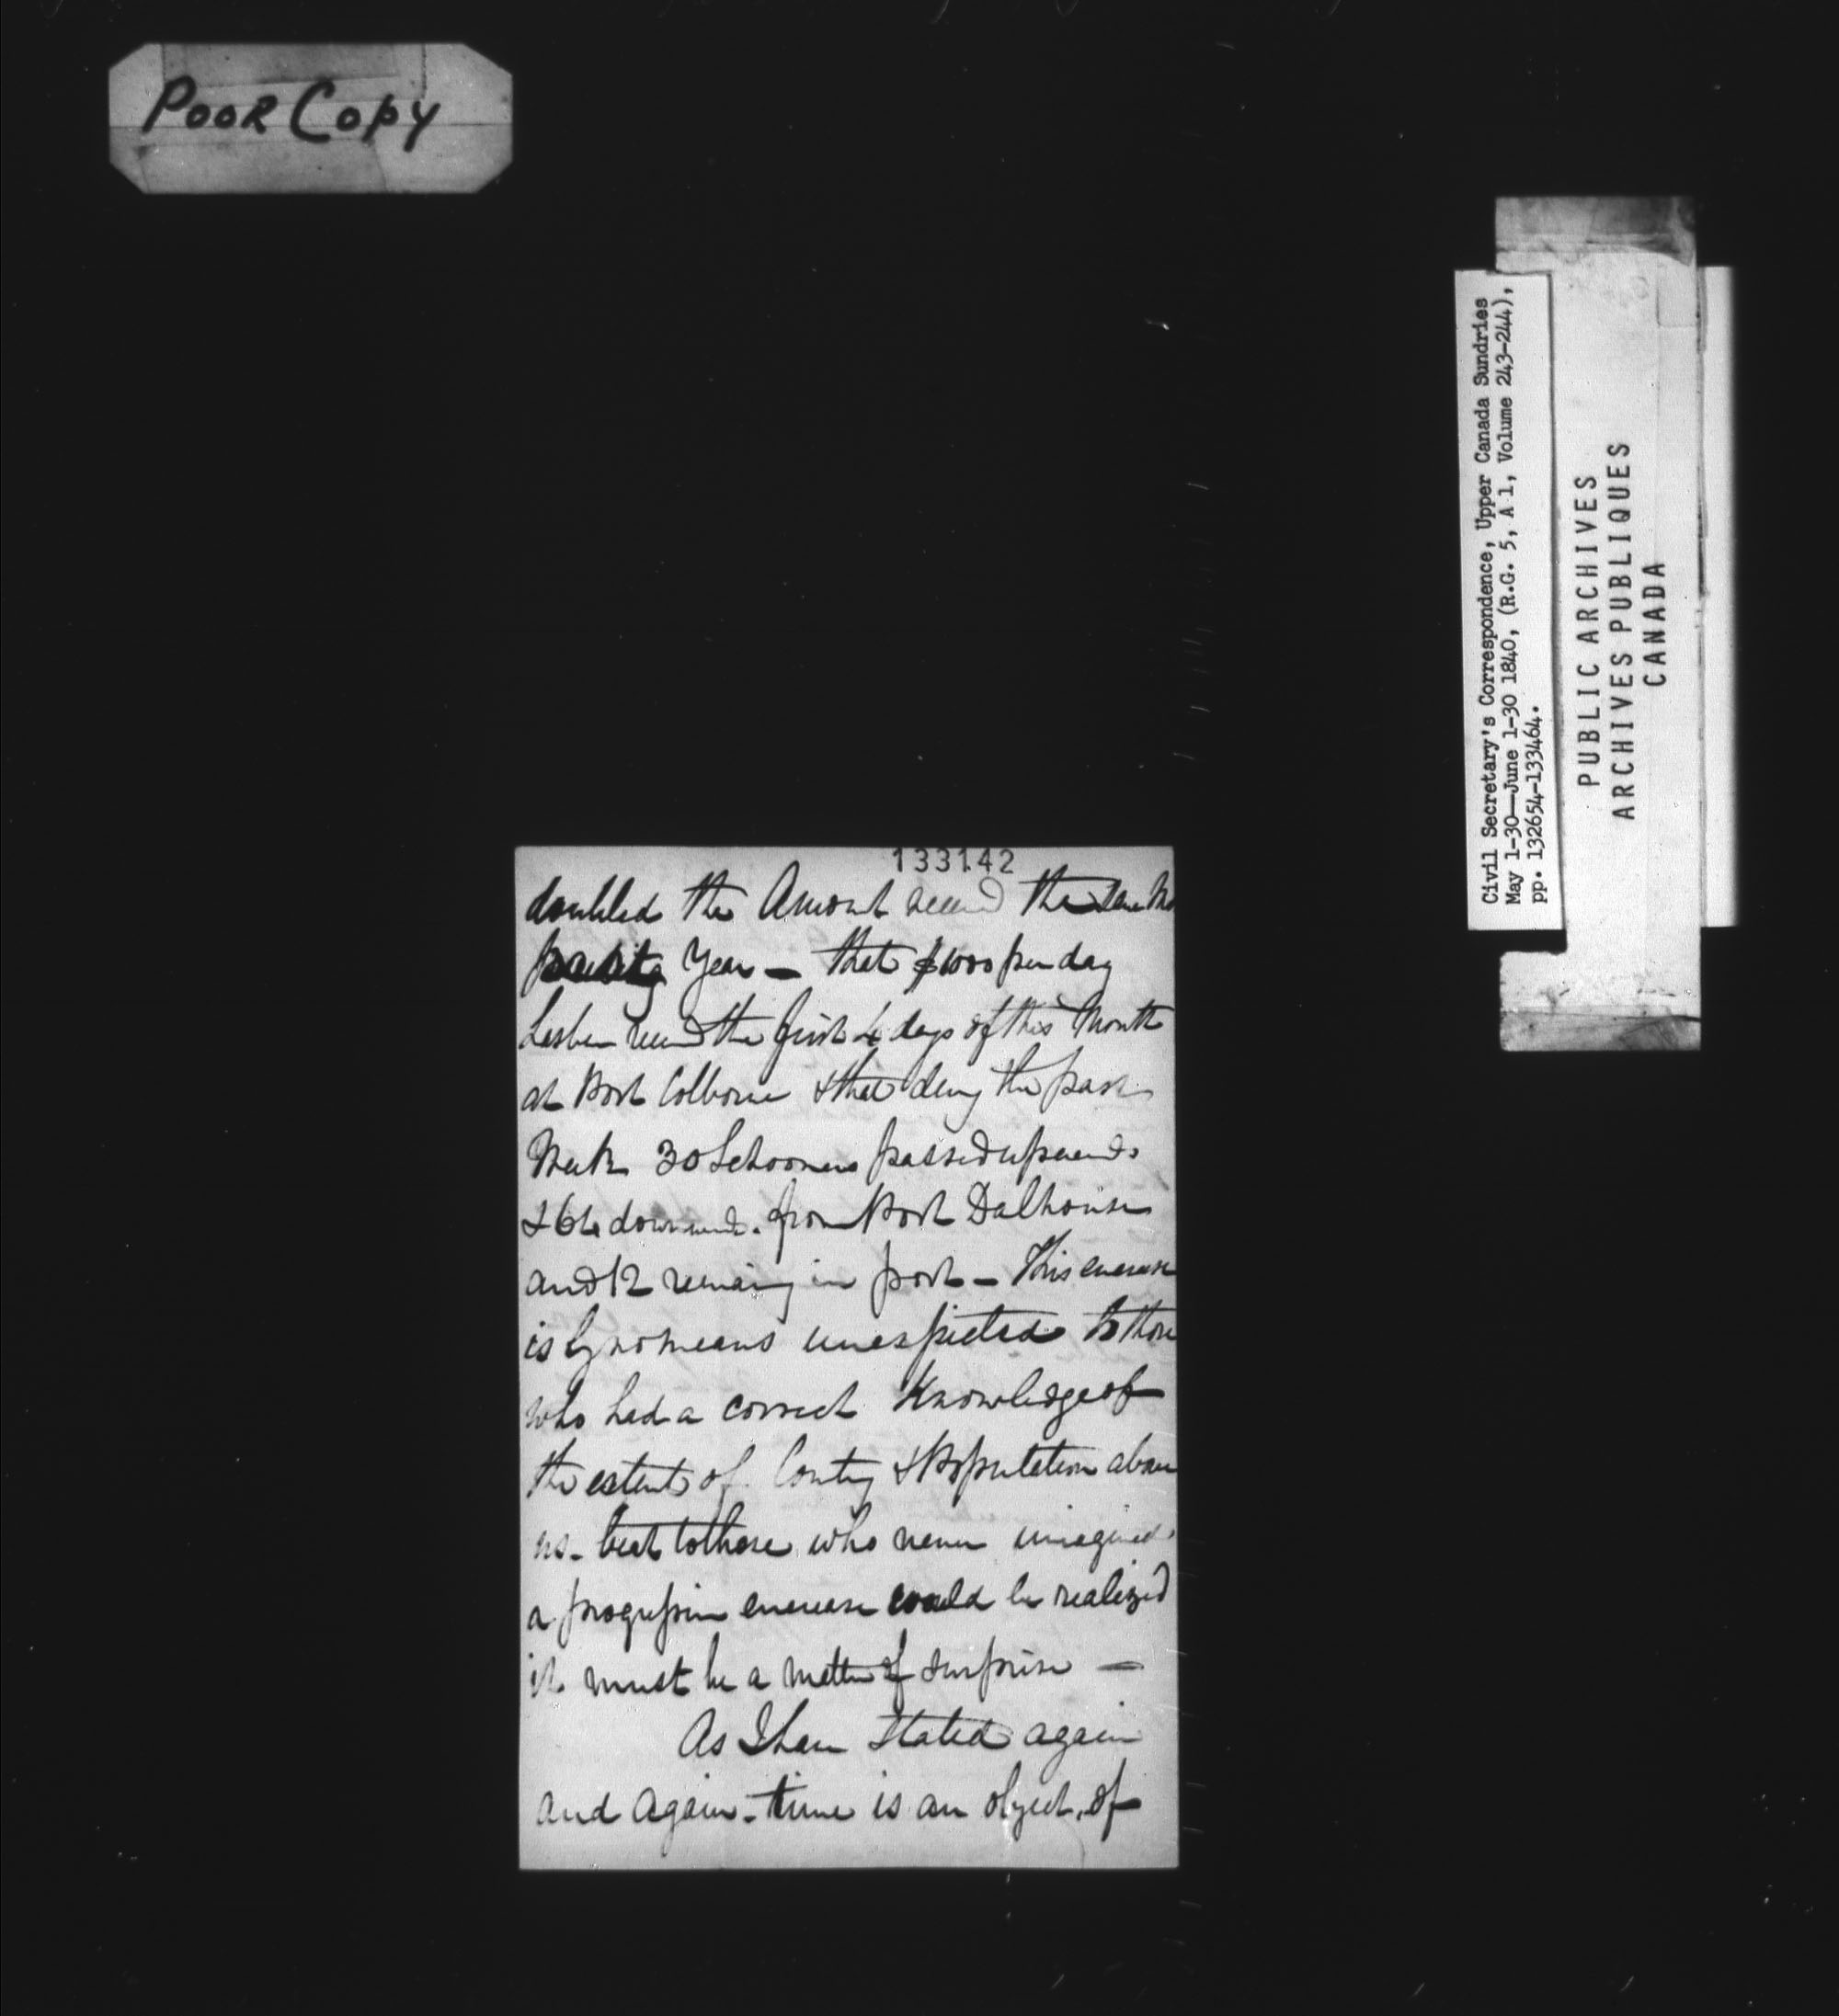 Poor Copy
Civil Secretary's Correspondence, Upper Canada Sundries
May 1-30—June 1-30 1840, (R.G. 5, A 1, Volume 243-244),
pp. 132654-133464.
PUBLIC ARCHIVES
ARCHIVES PUBLIQUES
CANADA
133142
doubled the Amount the same Mo
Year — that $1000 per day
has been the first 4 days of this Month
at Port Colborne & that the past
Week 30 Schooners passed upward
& 64 downward. from Port Dalhousie
and 12 remaing in port — This encrease
is by no means unexpected to those
who had a correct Knowledge of
the extent of Contry & Population above
us - but to those who never imagined
a progressive encrease could be realized
it must be a matter of surprise —
As I have stated again
and again - time is an object, of